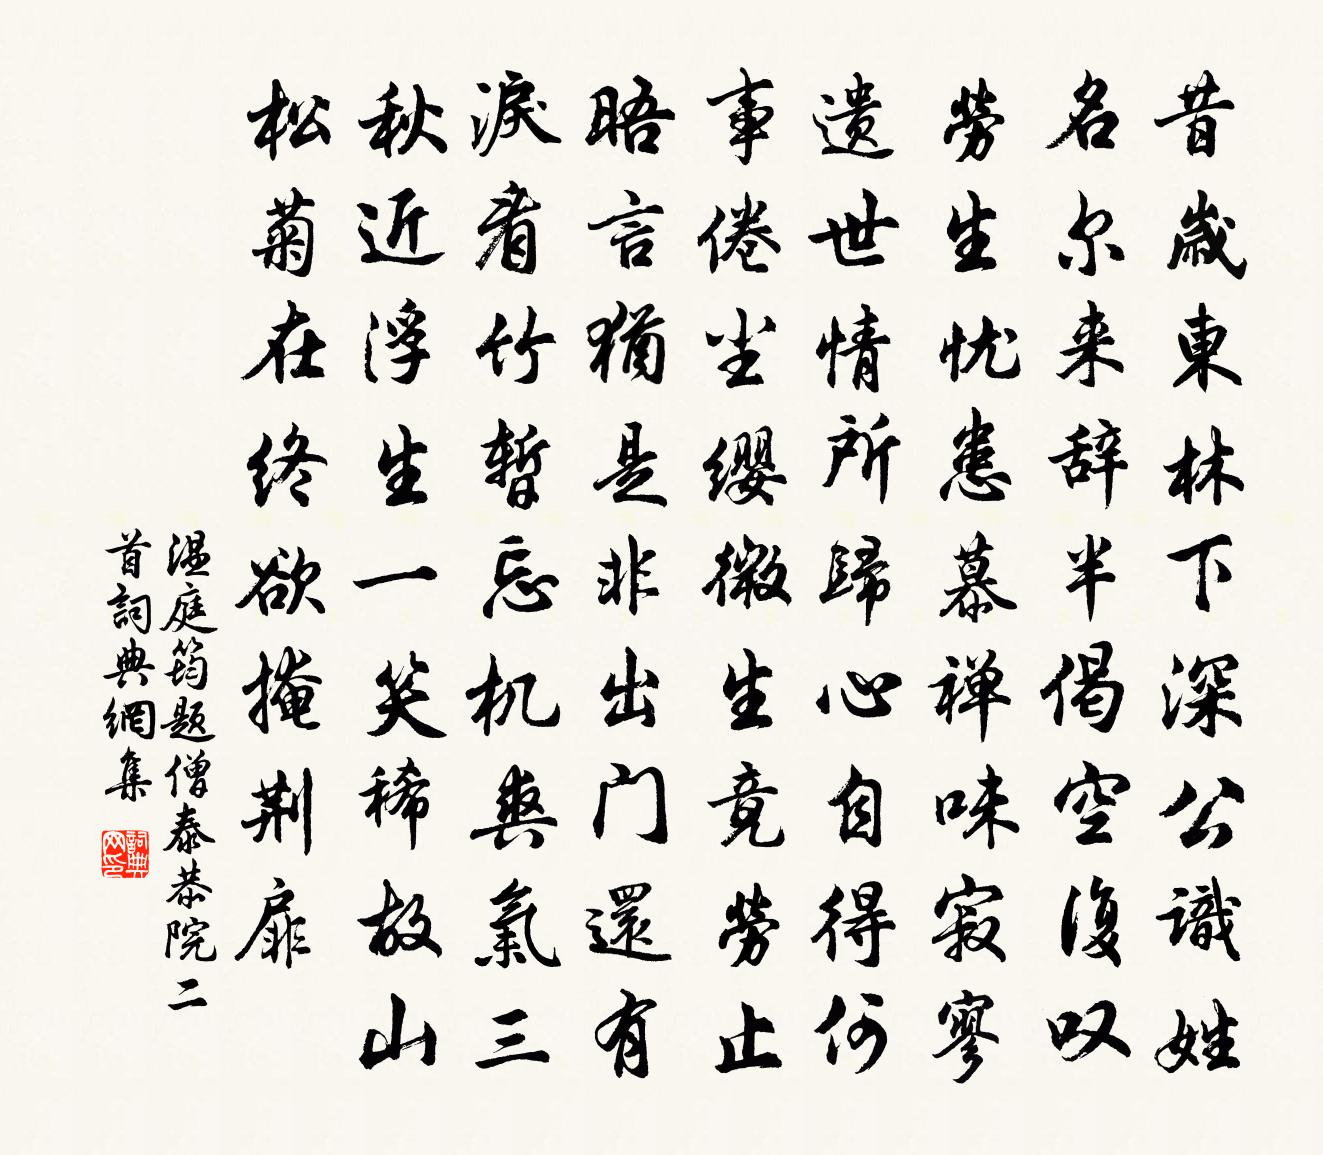 昔歲東林下深公識姓
名尔来辞半偈空復叹
勞生忧患慕禅味寂寥
遗世情所歸心自得何
事倦尘缨微生竟勞止
晤言猶是非出门還有
淚看竹暫忘机爽氣三
秋近浮生一笑稀故山
松菊在终欲掩荆扉
温庭筠题僧泰恭院二
首詞典網集